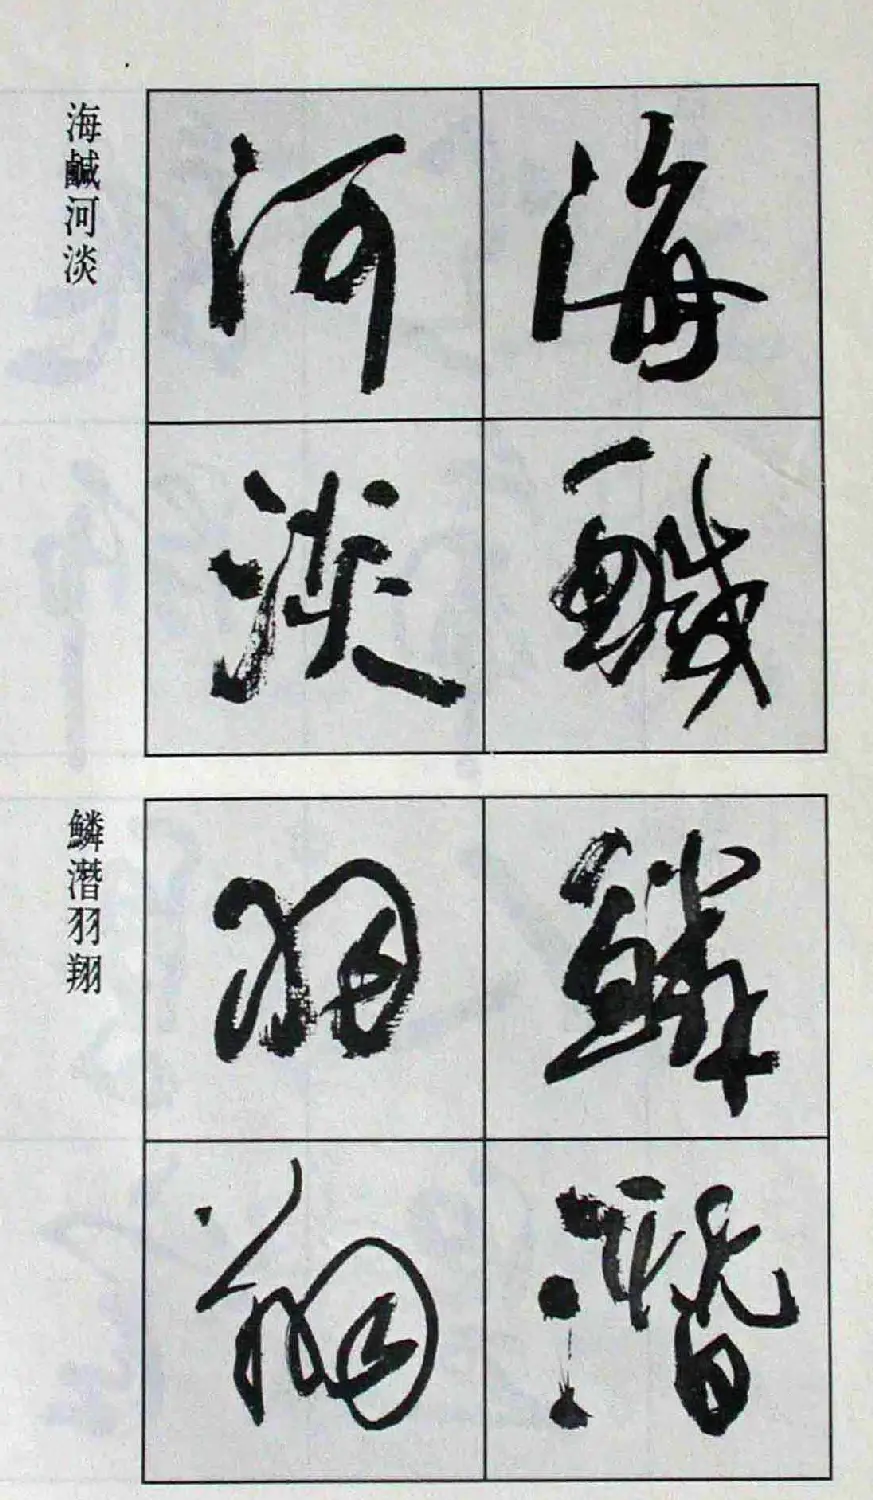 海鹹
河淡
海鹹河淡
鱗潛
羽翔
鱗潛羽翔